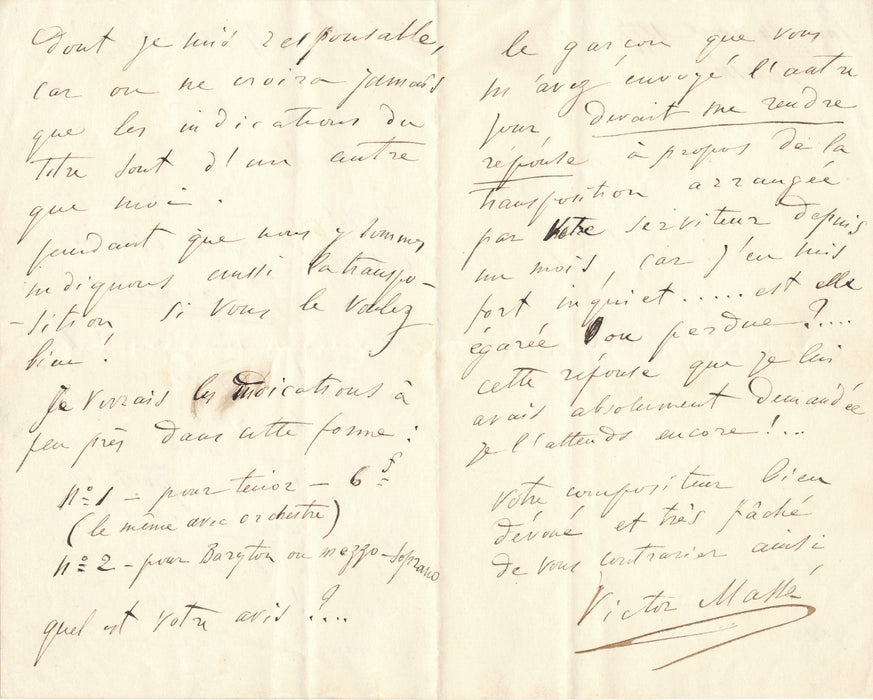 Dont je suis responsable,
car on ne croira jamais
que les indications du
titre sont d'un autre
que moi.
pendant que nous y sommes
indiquons aussi la transpo-
-sition si vous le voulez
bien!
Je verrais les indications à
peu près dans cette forme:
nº 1 - pour tenor - 6 f
(le même avec orchestre)
nº 2 - pour Baryton ou mezzo-soprano
quel est votre avis?...
le garçon que vous
m'avez envoyé l'autre
jour, devait me rendre
réponse à propos de la
transposition arrangée
par votre serviteur depuis
un mois, car j'en suis
fort inquiet..... est elle
égarée ou perdue?....
cette réponse que je lui
avais absolument demandée
je l'attends encore!...
votre compositeur bien
dévoué et très fâché
de vous contrarier ainsi
Victor Massé